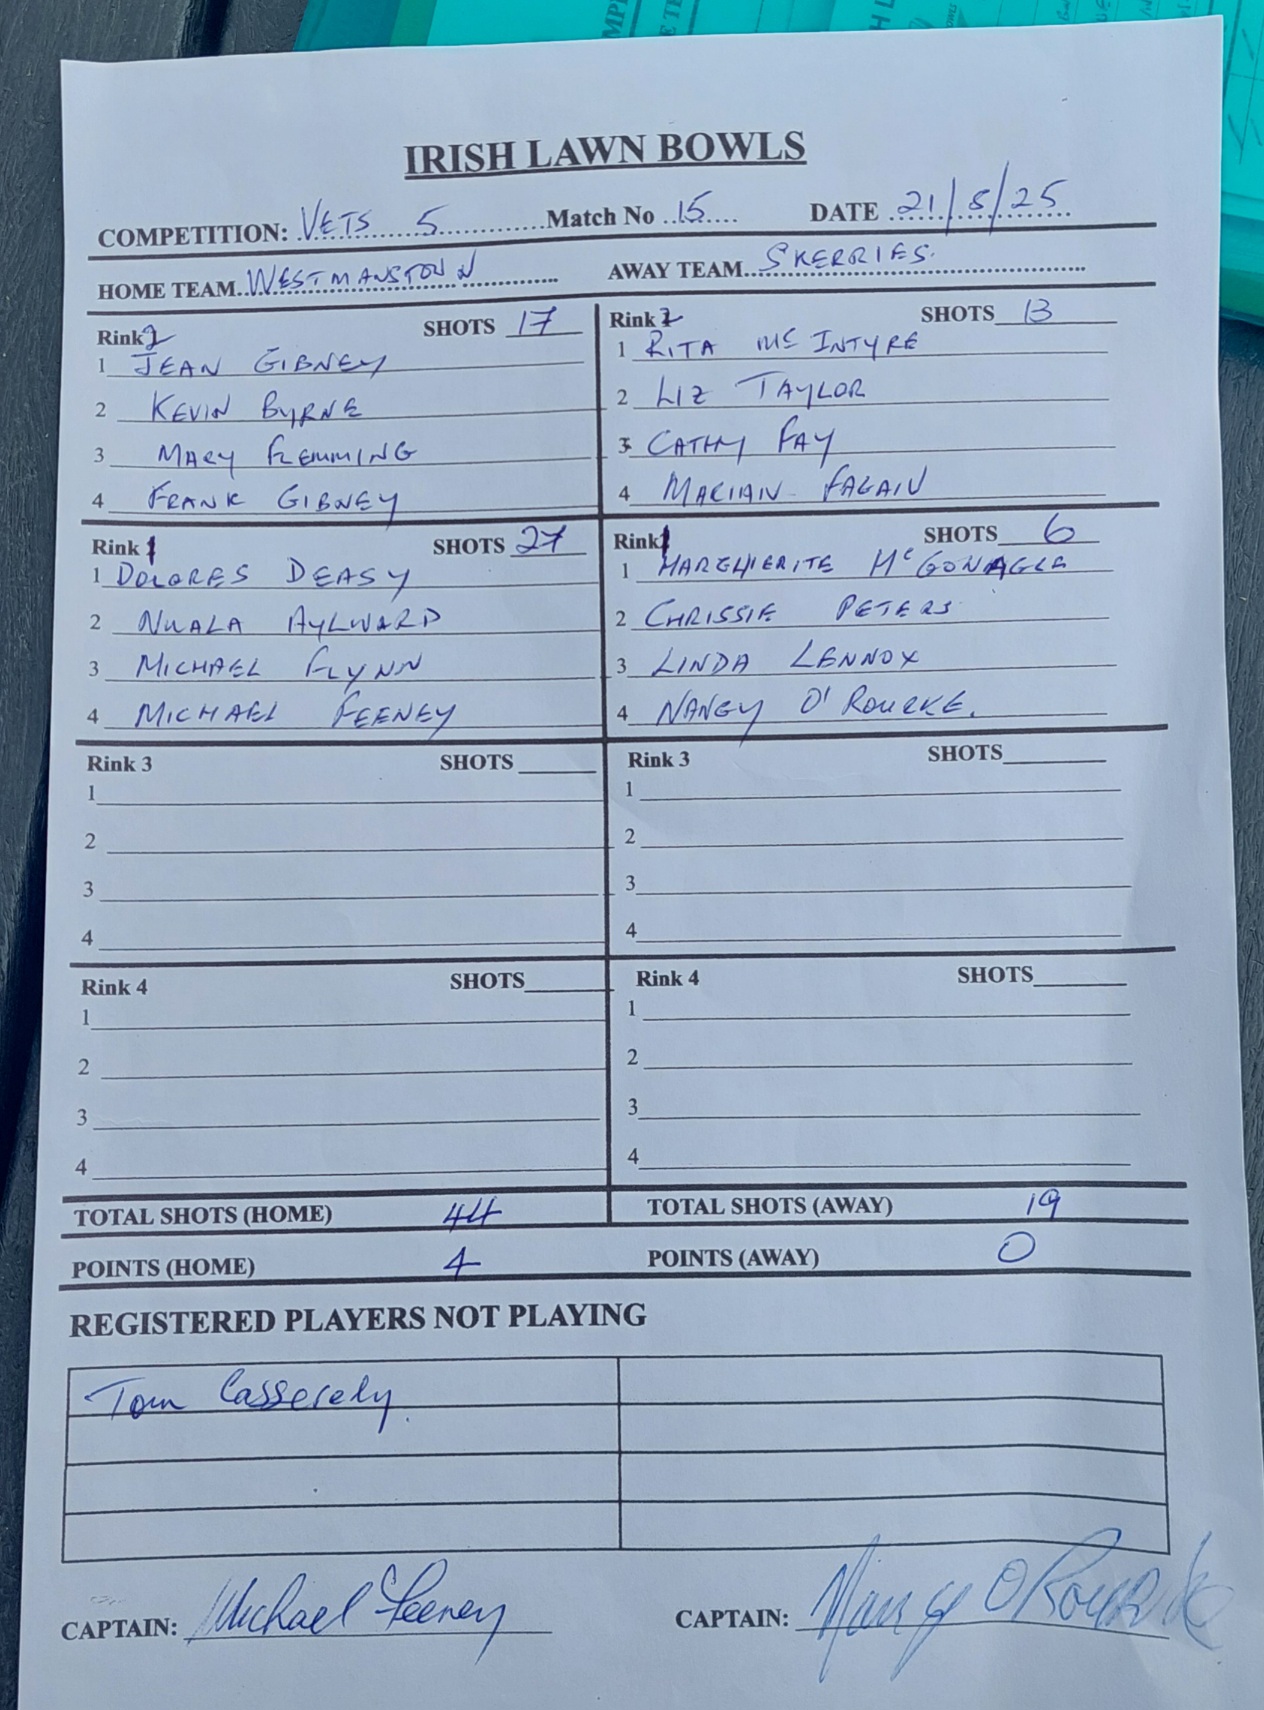 IRISH LAWN BOWLS
COMPETITION: VETS 5 Match No 15 DATE 21/8/25
HOME TEAM WESTMANSTOWN AWAY TEAM SKERRIES.
Rink 2 SHOTS 17
1 JEAN GIBNEY
2 KEVIN BYRNE
3 MARY FLEMMING
4 FRANK GIBNEY
Rink 2 SHOTS 13
1 RITA MC INTYRE
2 LIZ TAYLOR
3 CATHY FAY
4 MARIAN FAGAIN
Rink 1 SHOTS 27
1 DOLORES DEASY
2 NUALA AYLWARD
3 MICHAEL FLYNN
4 MICHAEL FEENEY
Rink 1 SHOTS 6
1 MARGHIERITE McGONAGLE
2 CHRISSIE PETERS
3 LINDA LENNOX
4 NANCY O'ROURKE.
Rink 3 SHOTS
1
2
3
4
Rink 3 SHOTS
1
2
3
4
Rink 4 SHOTS
1
2
3
4
Rink 4 SHOTS
1
2
3
4
TOTAL SHOTS (HOME) 44 TOTAL SHOTS (AWAY) 19
POINTS (HOME) 4 POINTS (AWAY) 0
REGISTERED PLAYERS NOT PLAYING
Tom Casserely.
CAPTAIN: Michael Feeney CAPTAIN: Nancy O Rourke